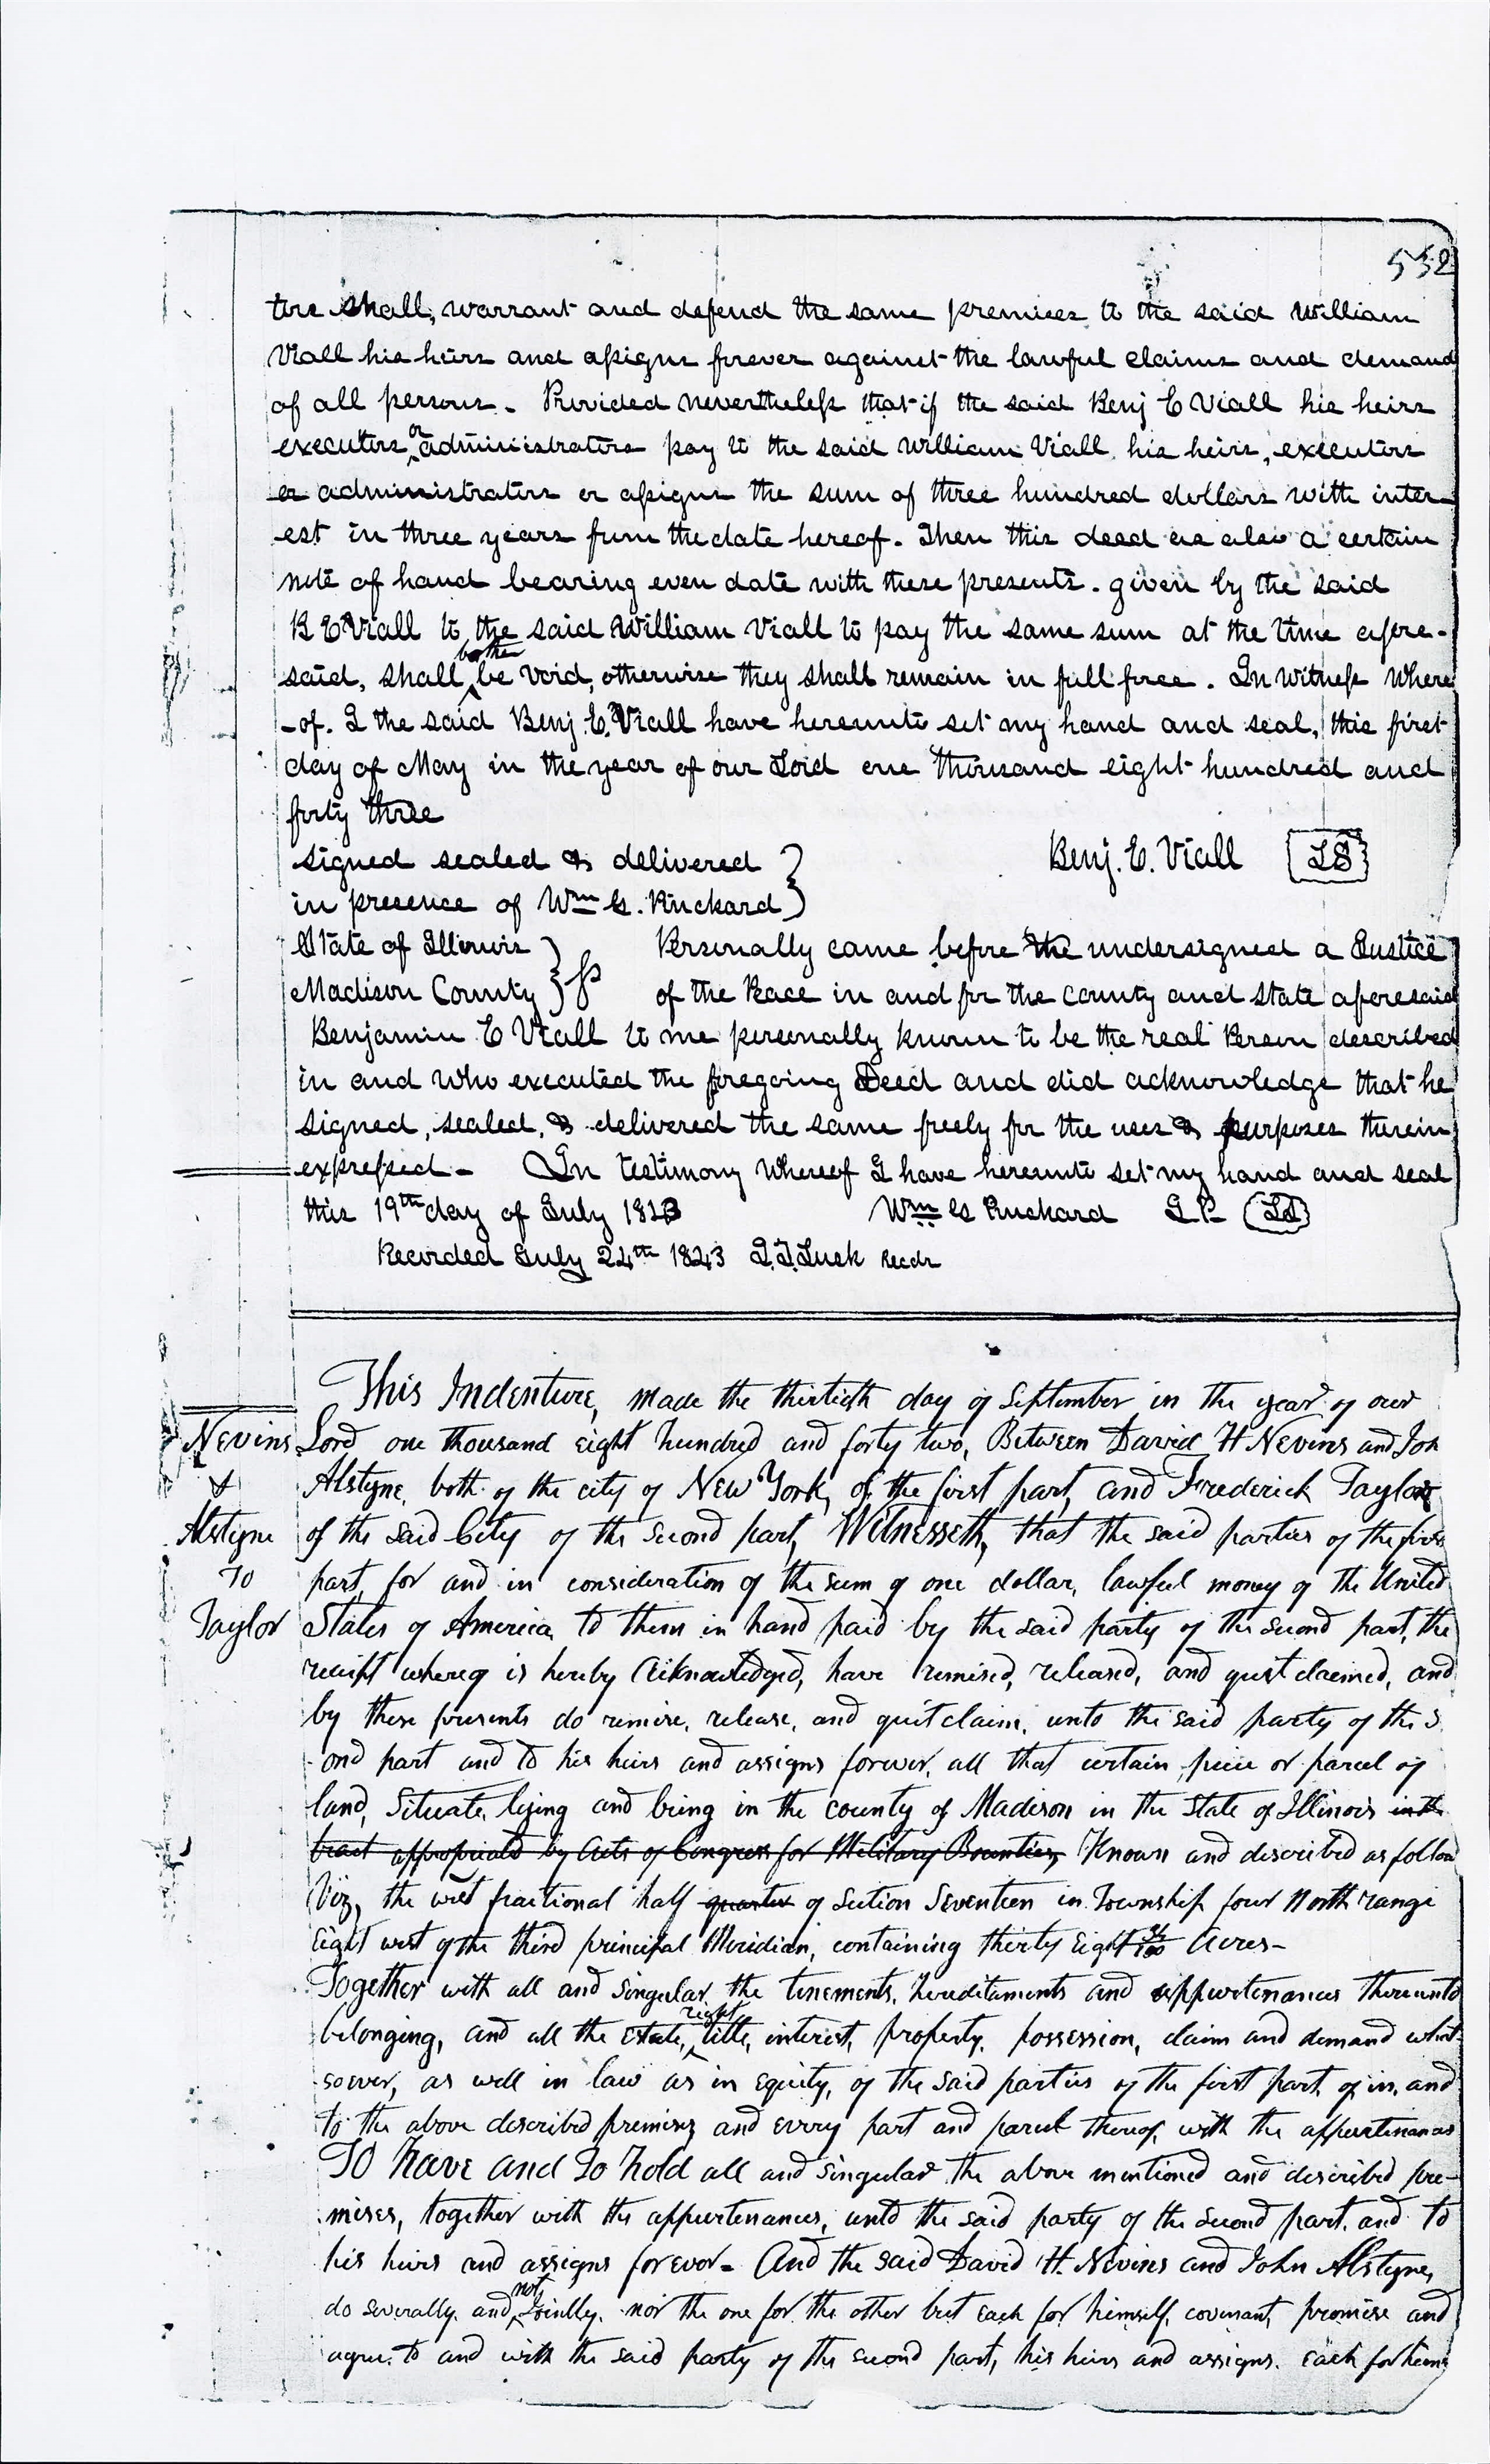 552
tors shall, warrant and defend the same premises to the said William
Viall his heirs and assigns forever against the lawful claims and demand
of all persons. Provided nevertheless that if the said Benj E Viall his heirs
executors or administrators pay to the said William Viall his heirs, executors
or administrators or assigns the sum of three hundred dollars with inter-
est in three years from the date hereof. Then this deed as also a certain
note of hand bearing even date with these presents. given by the said
B E Viall to the said William Viall to pay the same sum at the time afore-
said, shall both be void, otherwise they shall remain in full force. In Witness Where
-of. I the said Benj. E. Viall have hereunto set my hand and seal, this first
day of May in the year of our Lord one thousand eight hundred and
forty three
signed sealed & delivered
in presence of Wm G. Pinckard
Benj. E. Viall LS
State of Illinois
Madison County ss
Personally came before the undersigned a Justice
of the Peace in and for the county and state aforesaid
Benjamin E Viall to me personally known to be the real Person described
in and who executed the foregoing Deed and did acknowledge that he
signed, sealed, & delivered the same freely for the uses & purposes therein
expressed - In testimony Whereof I have hereunto set my hand and seal
this 19th day of July 1843 Wm G Pinckard J P LS
Recorded July 24th 1843 I. T. Lusk Recdr
Nevins
&
Alstyne
To
Taylor
This Indenture, made the thirtieth day of September in the year of our
Lord one thousand eight hundred and forty two, Between David H Nevins and Joh
Alstyne, both of the city of New York, of the first part, and Frederick Taylor
of the said City of the second part, Witnesseth, that the said parties of the firs
part, for and in consideration of the sum of one dollar, lawful money of the United
States of America to them in hand paid by the said party of the second part, the
receipt whereof is hereby acknowledged, have remised, released, and quit claimed, and
by these presents do remise, release, and quit claim, unto the said party of the s
ond part and to his heirs and assigns forever, all that certain piece or parcel of
land, Situate, lying and being in the county of Madison in the State of Illinois in the
tract appropriated by Acts of Congress for Military Bounties, Known and described as follow
Viz, the west fractional half quarter of Section Seventeen in Township four North range
Eight west of the third principal Meridian, containing thirty Eight Acres-
Together with all and singular the tenements, hereditaments and appurtenances thereunto
belonging, and all the estate, right, title, interest, property, possession, claim and demand what-
soever, as well in law as in equity, of the said parties of the first part, of in, and
to the above described premises and every part and parcel thereof, with the appurtenances
To have and To hold all and singular the above mentioned and described pre-
mises, together with the appurtenances, unto the said party of the second part, and to
his heirs and assigns forever - And the said David H. Nevins and John Alstyne,
do severally, and not jointly, nor the one for the other but each for himself, covenant, promise and
agree to and with the said party of the second part, his heirs and assigns. each for hims